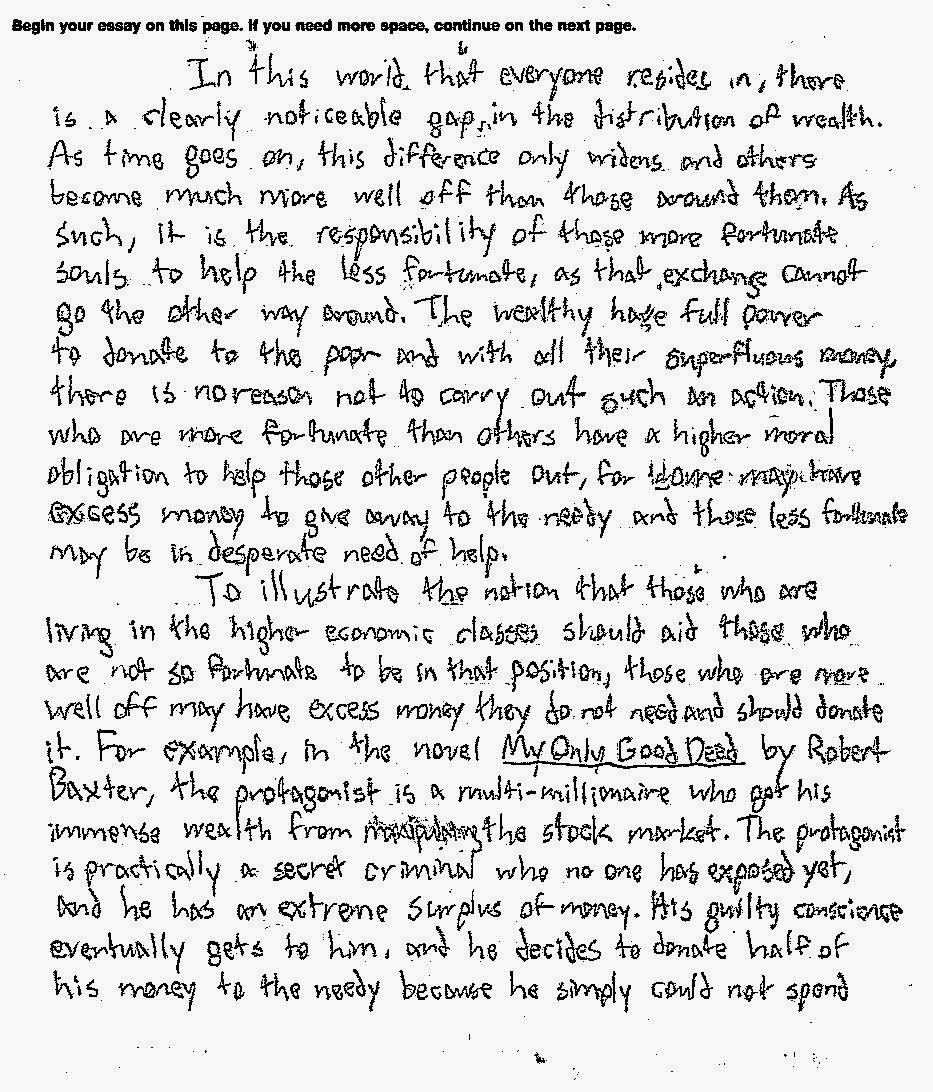 Begin your essay on this page. If you need more space, continue on the next page.
In this world that everyone resides in, there
is a clearly noticeable gap, in the distribution of wealth.
As time goes on, this difference only widens and others
become much more well off than those around them. As
such, it is the responsibility of those more fortunate
souls to help the less fortunate, as that exchange cannot
go the other way around. The wealthy have full power
to donate to the poor and with all their superfluous money,
there is no reason not to carry out such an action. Those
who are more fortunate than others have a higher moral
obligation to help those other people out, for some may have
excess money to give away to the needy and those less fortunate
may be in desperate need of help.
To illustrate the notion that those who are
living in the higher economic classes should aid those who
are not so fortunate to be in that position, those who are more
well off may have excess money they do not need and should donate
it. For example, in the novel My Only Good Deed by Robert
Baxter, the protagonist is a multi-millionaire who got his
immense wealth from manipulating the stock market. The protagonist
is practically a secret criminal who no one has exposed yet,
and he has an extreme surplus of money. His guilty conscience
eventually gets to him, and he decides to donate half of
his money to the needy because he simply could not spend